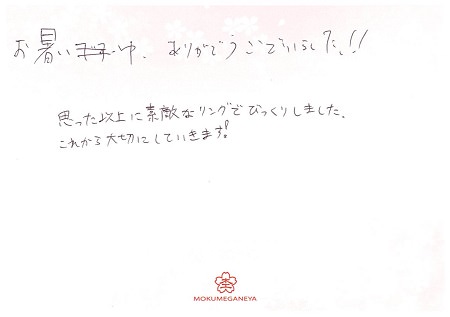 お暑い中、ありがとうございました!!
思った以上に素敵なリングでびっくりしました。
これから大切にしていきます!
MOKUMEGANEYA